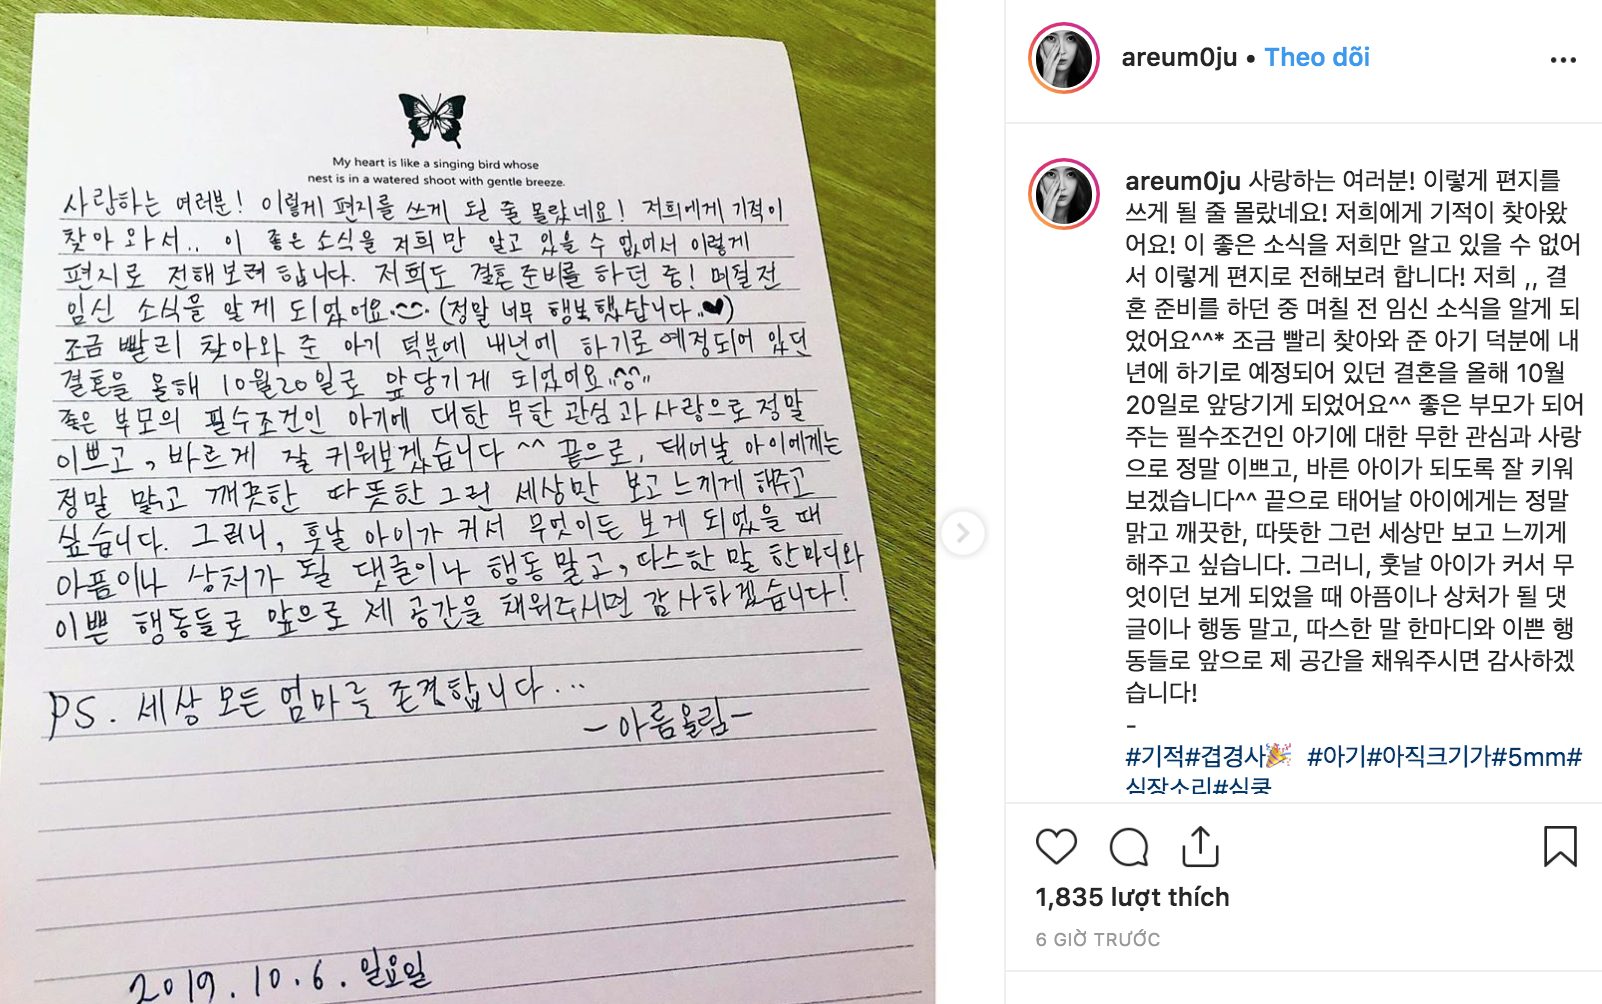 My heart is like a singing bird whose
nest is in a watered shoot with gentle breeze.
사랑하는 여러분! 이렇게 편지를 쓰게 될 줄 몰랐네요! 저희에게 기적이
찾아와서.. 이 좋은 소식을 저희만 알고 있을 수 없어서 이렇게
편지로 전해보려 합니다. 저희도 결혼준비를 하던 중! 며칠전
임신 소식을 알게 되었어요.^^. (정말 너무 행복했습니다..♥)
조금 빨리 찾아와 준 아기 덕분에 내년에 하기로 예정되어 있던
결혼을 올해 10월20일로 앞당기게 되었어요"^^"
좋은 부모의 필수조건인 아기에 대한 무한 관심과 사랑으로 정말
이쁘고, 바르게 잘 키워보겠습니다^^ 끝으로, 태어날 아이에게는
정말 맑고 깨끗한 따뜻한 그런 세상만 보고 느끼게 해주고
싶습니다. 그러니, 훗날 아이가 커서 무엇이든 보게 되었을 때
아픔이나 상처가 될 댓글이나 행동 말고, 따스한 말 한마디와
이쁜 행동들로 앞으로 제 공간을 채워주시면 감사하겠습니다!
PS. 세상 모든 엄마를 존경합니다...
-아름올림-
2019.10.6.일요일
areum0ju • Theo dõi
areum0ju 사랑하는 여러분! 이렇게 편지를
쓰게 될 줄 몰랐네요! 저희에게 기적이 찾아왔
어요! 이 좋은 소식을 저희만 알고 있을 수 없어
서 이렇게 편지로 전해보려 합니다! 저희 ,, 결
혼 준비를 하던 중 며칠 전 임신 소식을 알게 되
었어요^^* 조금 빨리 찾아와 준 아기 덕분에 내
년에 하기로 예정되어 있던 결혼을 올해 10월
20일로 앞당기게 되었어요^^ 좋은 부모가 되어
주는 필수조건인 아기에 대한 무한 관심과 사랑
으로 정말 이쁘고, 바른 아이가 되도록 잘 키워
보겠습니다^^ 끝으로 태어날 아이에게는 정말
맑고 깨끗한, 따뜻한 그런 세상만 보고 느끼게
해주고 싶습니다. 그러니, 훗날 아이가 커서 무
엇이던 보게 되었을 때 아픔이나 상처가 될 댓
글이나 행동 말고, 따스한 말 한마디와 이쁜 행
동들로 앞으로 제 공간을 채워주시면 감사하겠
습니다!
-
#기적#겹경사🎉 #아기#아직크기가#5mm#
심장소리#심쿵
1,835 lượt thích
6 GIỜ TRƯỚC